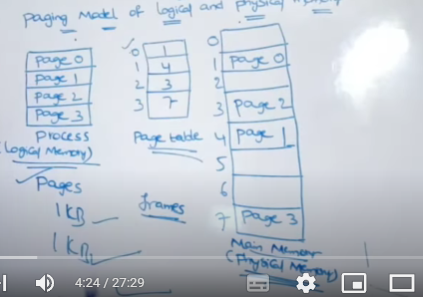 Paging Model of logical and physical memory
page 0
page 1
page 2
page 3
Process
(Logical Memory)
Pages
1 KB
1 KB
0 1
1 4
2 3
3 7
Page table
frames
0
1 page 0
2
3 page 2
4 page 1
5
6
7 page 3
Main Memory
(Physical Memory)
4:24 / 27:29